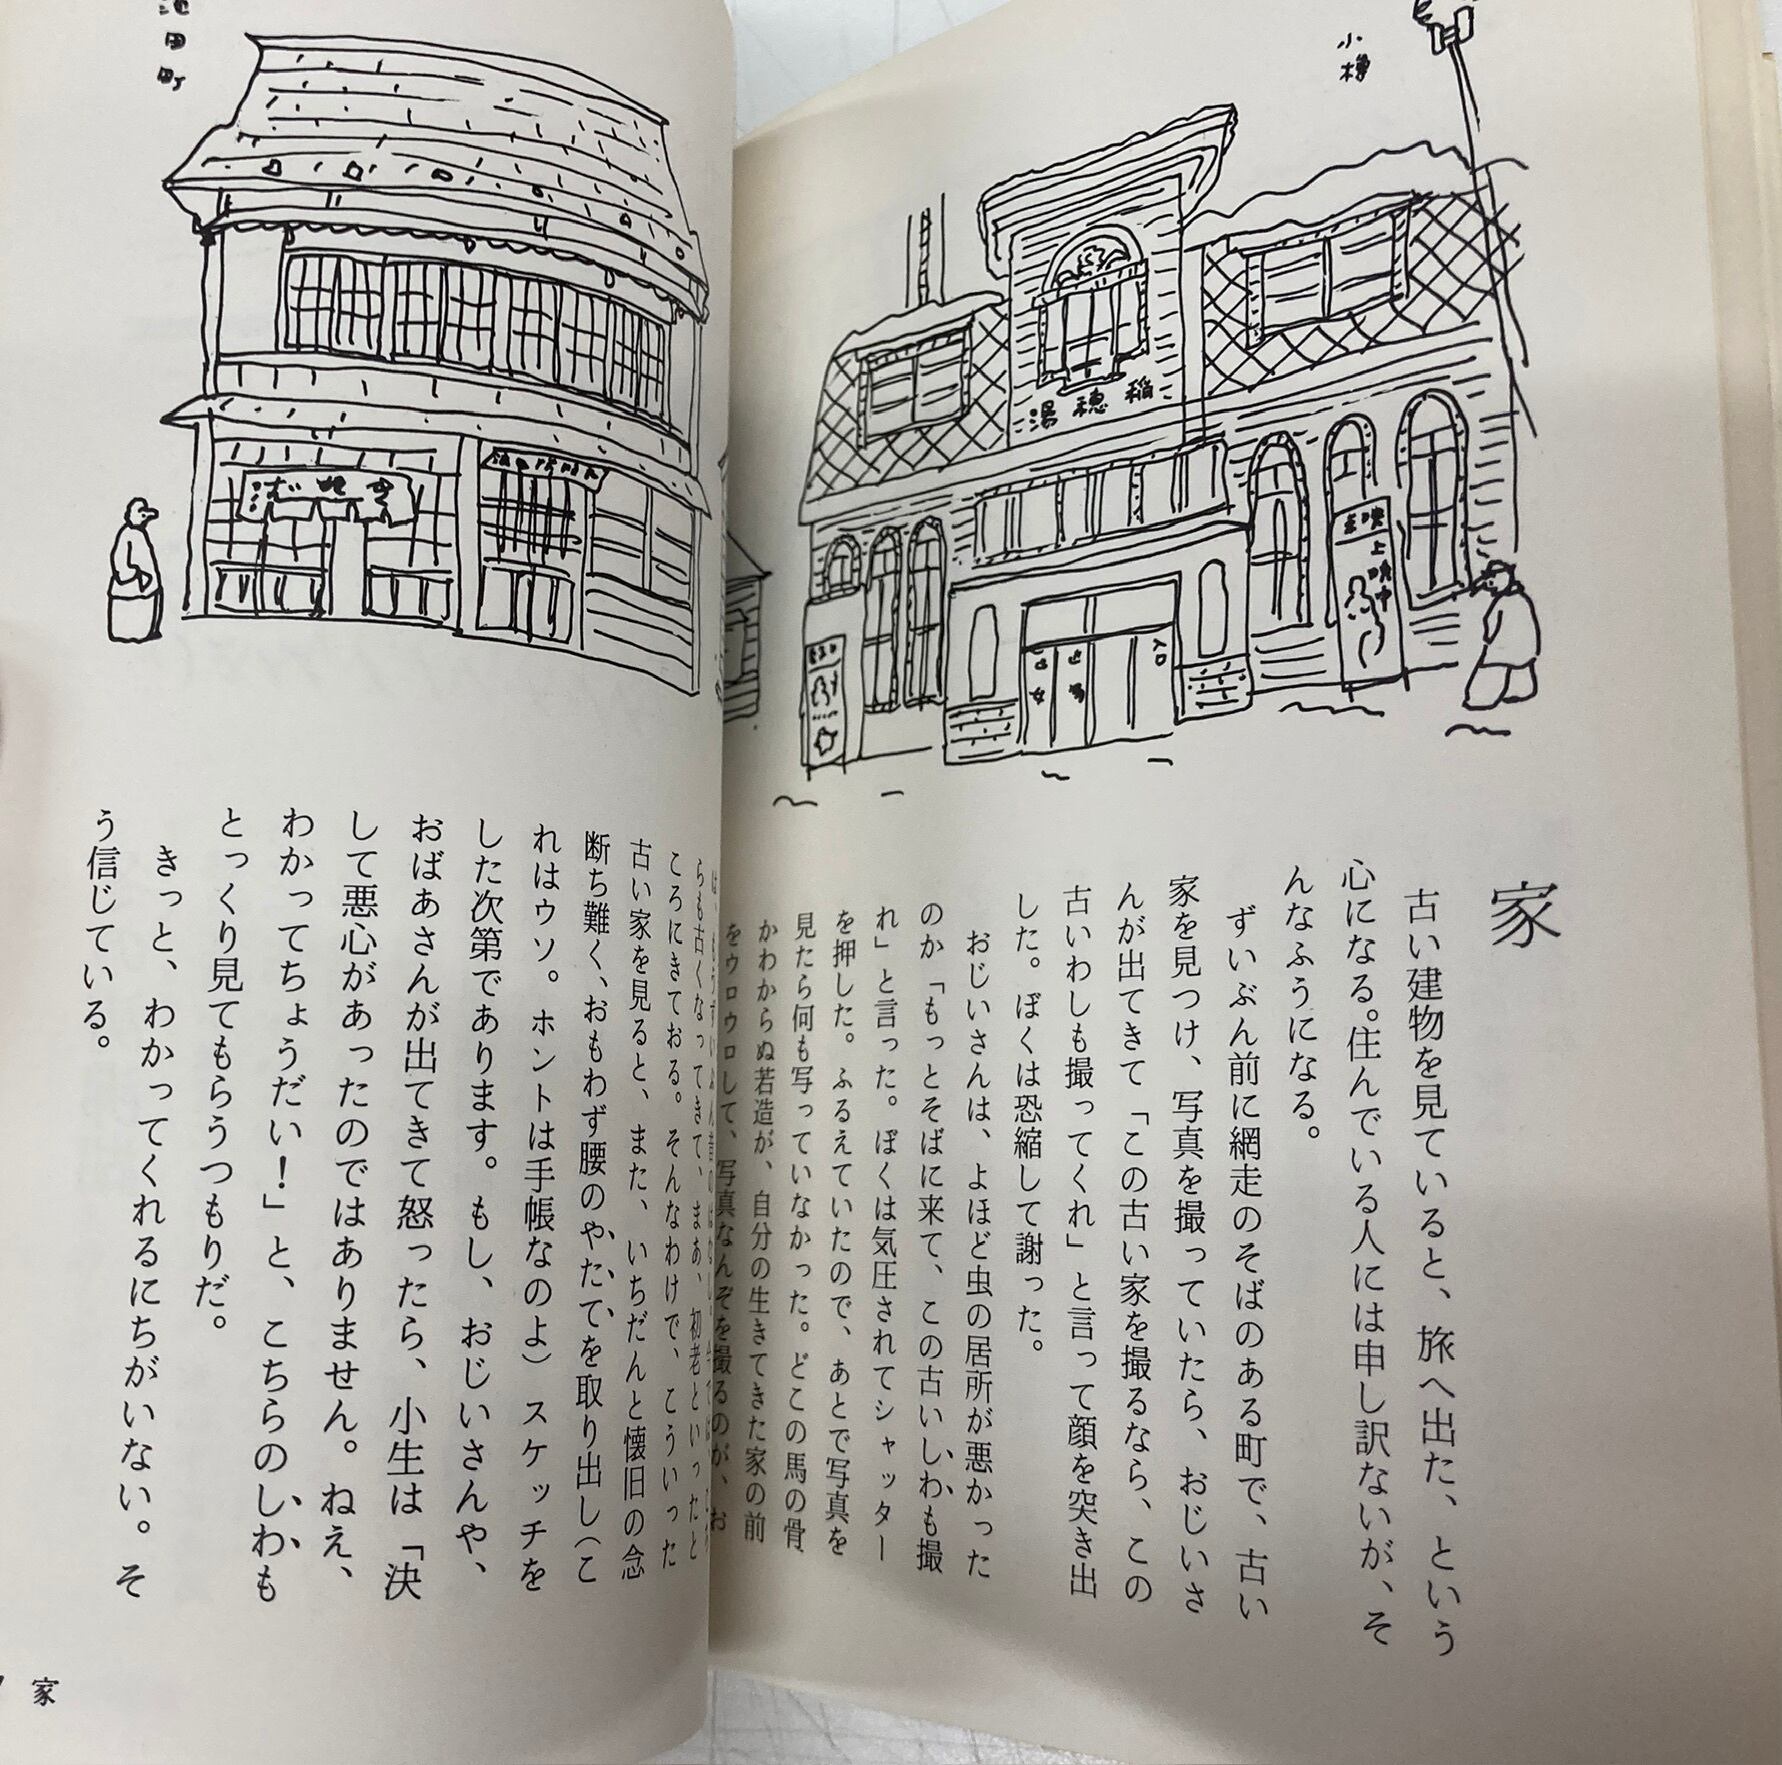 小樽
稲穂湯
上映中
入口
家
古い建物を見ていると、旅へ出た、という
心になる。住んでいる人には申し訳ないが、そ
んなふうになる。
ずいぶん前に網走のそばのある町で、古い
家を見つけ、写真を撮っていたら、おじいさ
んが出てきて「この古い家を撮るなら、この
古いわしも撮ってくれ」と言って顔を突き出
した。ぼくは恐縮して謝った。
おじいさんは、よほど虫の居所が悪かった
のか「もっとそばに来て、この古いしわも撮
れ」と言った。ぼくは気圧されてシャッター
を押した。ふるえていたので、あとで写真を
見たら何も写っていなかった。どこの馬の骨
かわからぬ若造が、自分の生きてきた家の前
をウロウロして、写真なんぞを撮るのが、お
池田町
らも古くなってきて、まあ、初老といったと
ころにきておる。そんなわけで、こういった
古い家を見ると、また、いちだんと懐旧の念
断ち難く、おもわず腰のやたてを取り出し(こ
れはウソ。ホントは手帳なのよ)スケッチを
した次第であります。もし、おじいさんや、
おばあさんが出てきて怒ったら、小生は「決
して悪心があったのではありません。ねえ、
わかってちょうだい！」と、こちらのしわも
とっくり見てもらうつもりだ。
きっと、わかってくれるにちがいない。そ
う信じている。
家